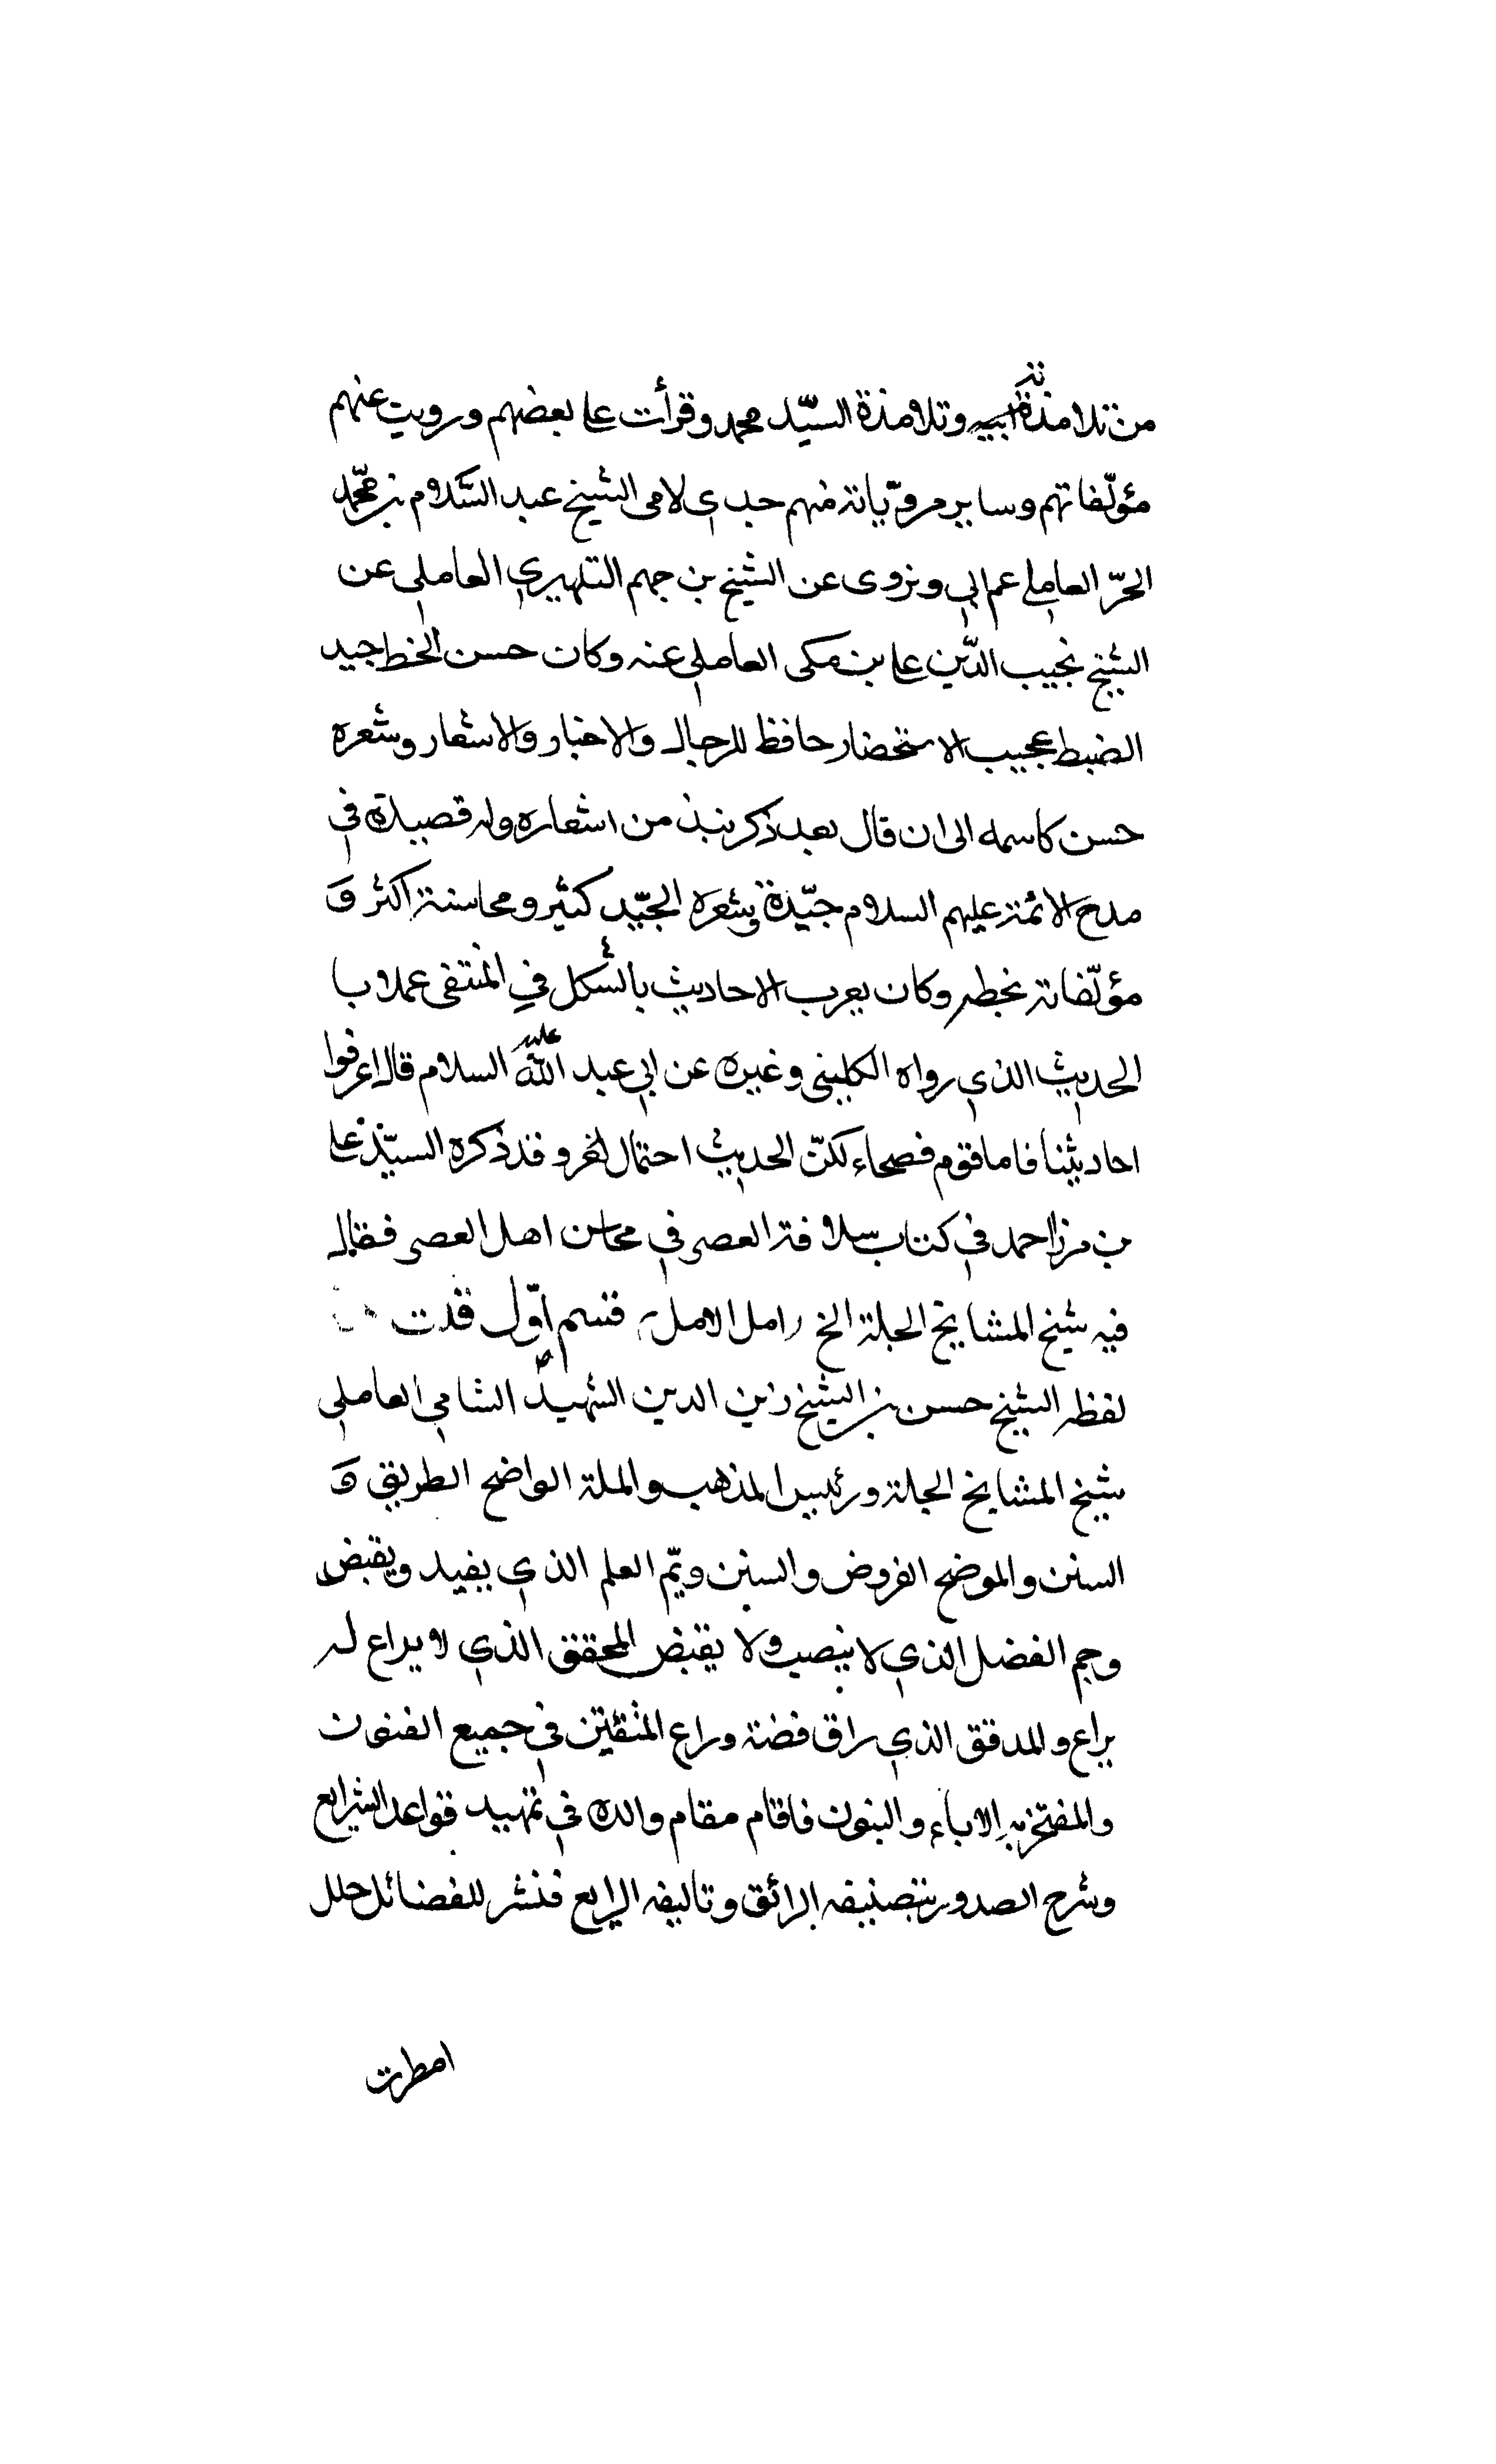 من تلامذة ابيه وتلامذة السيّد محمد وقرأت على بعضهم ورويت عنهم
مؤلّفاتهم وساير مرويّاته منهم جدى لامى الشيخ عبد السّلام بن محمّد
الحرّ العاملي عم ابي ونروى عن الشيخ بن جهم التلهيري العاملي عن
الشيخ نجيب الدّين على بن مكى العاملي عنه وكان حسن الخط جيد
الضبط عجيب الاستحضار حافظا للرجال والاخبار والاشعار وشعره
حسن كاسمه الى ان قال بعد ذكر نبذ من اشعاره وله قصيدة في
مدح الائمة عليهم السلام جيّدة وشعره الجيّد كثير ومحاسنه اكثر و
مؤلّفاته بخطه وكان يعرب الاحاديث بالشكل في المنتقى عملا با
الحديث الذي رواه الكلينى وغيره عن ابي عبد الله عليه السلام قال اعرفوا
احاديثنا فاما فقوم فصحاء لكنّ الحديث احتمال اخر وقد ذكره السيّد على
بن مرزا احمد في كتاب سلافة العصر في محاسن اهل العصر فقال
فيه شيخ المشايخ الجلة الخ امل الامل قسم اوّل قدت
لفظه الشيخ حسن بن الشيخ زين الدين الشهيد الشامي العاملي
شيخ المشايخ الجلة ورئيس المذهب والملة الواضح الطريق و
السنن والموضح الفروض والسنن ويّم العلم الذي يفيد ويقبض
وجم الفضل الذي لا ينصب ولا يقبض المحقق الذي لا يراع له
يراع والمدقق الذي راق فضة وراع المنقين في جميع الفنون
والمفتخر به الاباء والبنون فاقام مقام والده في تمهيد قواعد الشرايع
وشرح الصدور بتصنيفه الرائق وتاليفه الرايع فنشر للفضائل حلل
امطرت